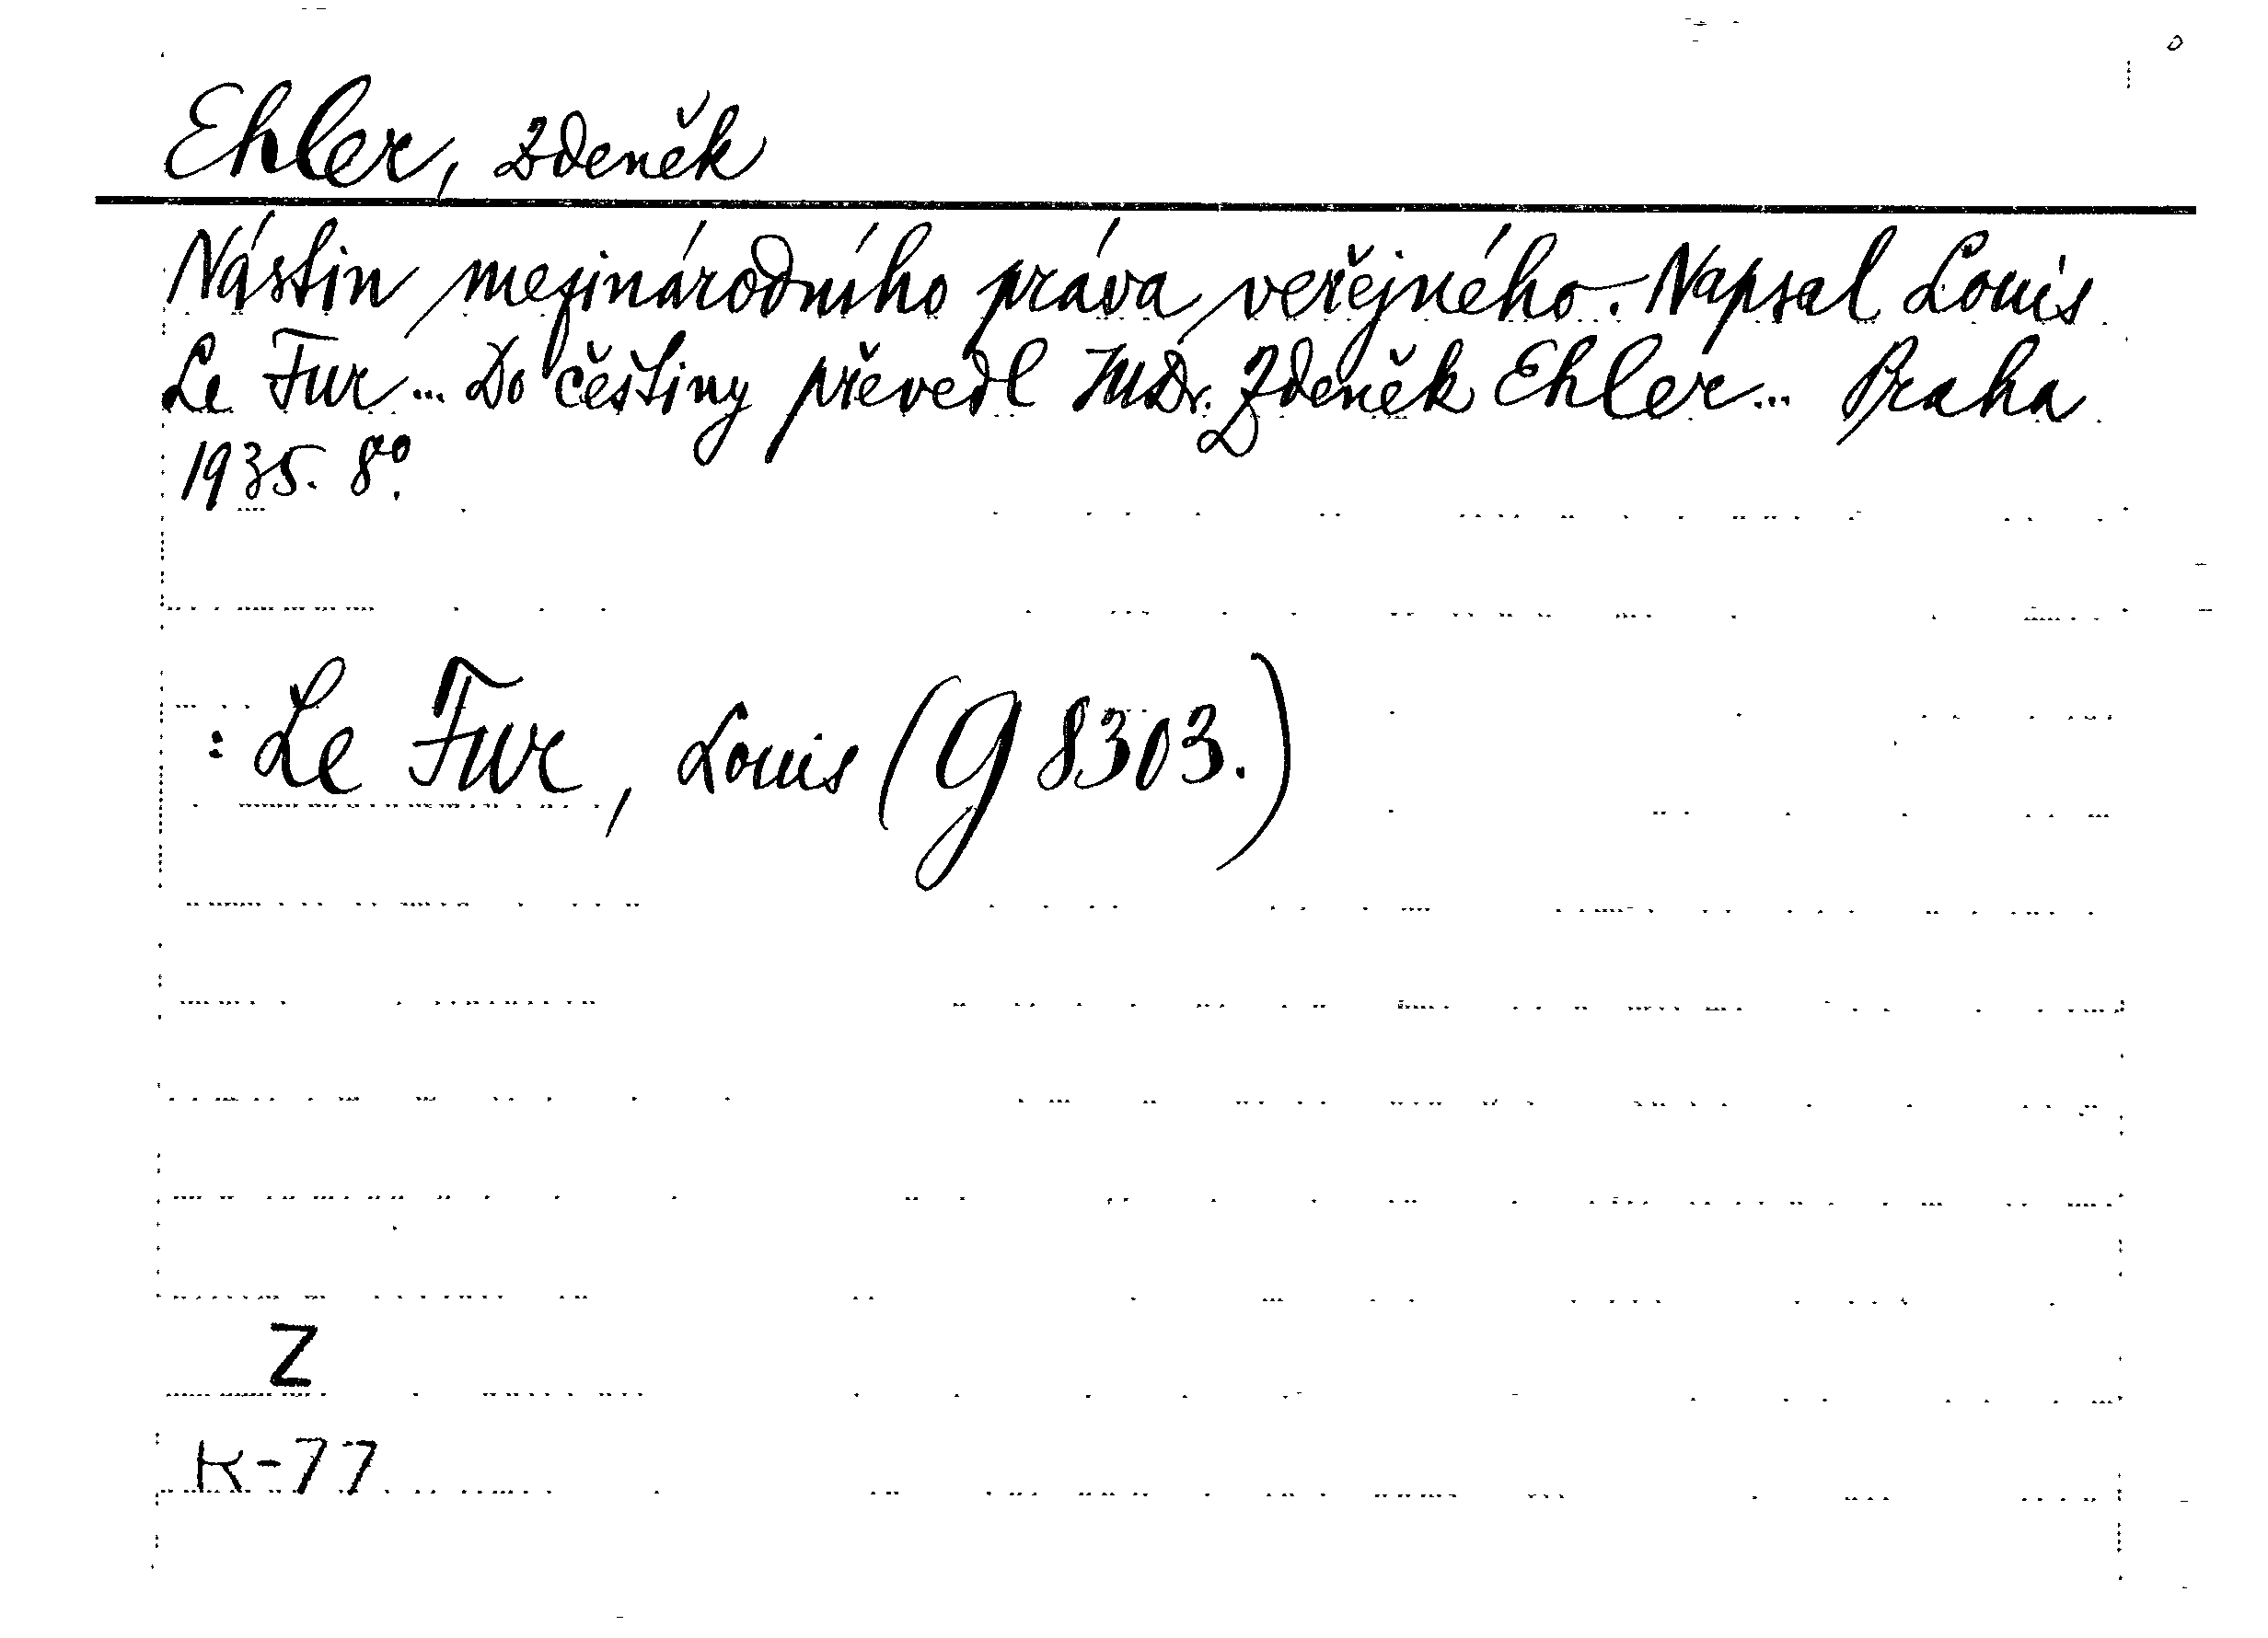 Ehler, Zdeněk
Nástin mezinárodního práva veřejného. Napsal Louis
Le Fur... Do češtiny převedl JUDr. Zdeněk Ehler... Praha
1935. 8°.
: Le Fur, Louis (G 8303.)
Z
K-77